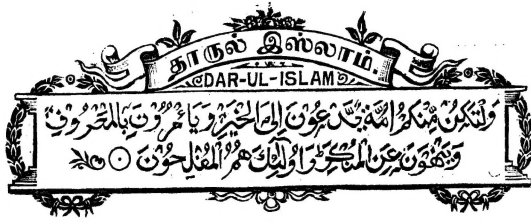 தாருல் இஸ்லாம்.
DAR-UL-ISLAM
وَلْتَكُنْ مِّنْكُمْ اُمَّةٌ يَّدْعُوْنَ اِلَى الْخَيْرِ وَيَاْمُرُوْنَ بِالْمَعْرُوْفِ
وَيَنْهَوْنَ عَنِ الْمُنْكَرِ وَاُولٰٓئِكَ هُمُ الْمُفْلِحُوْنَ ۝